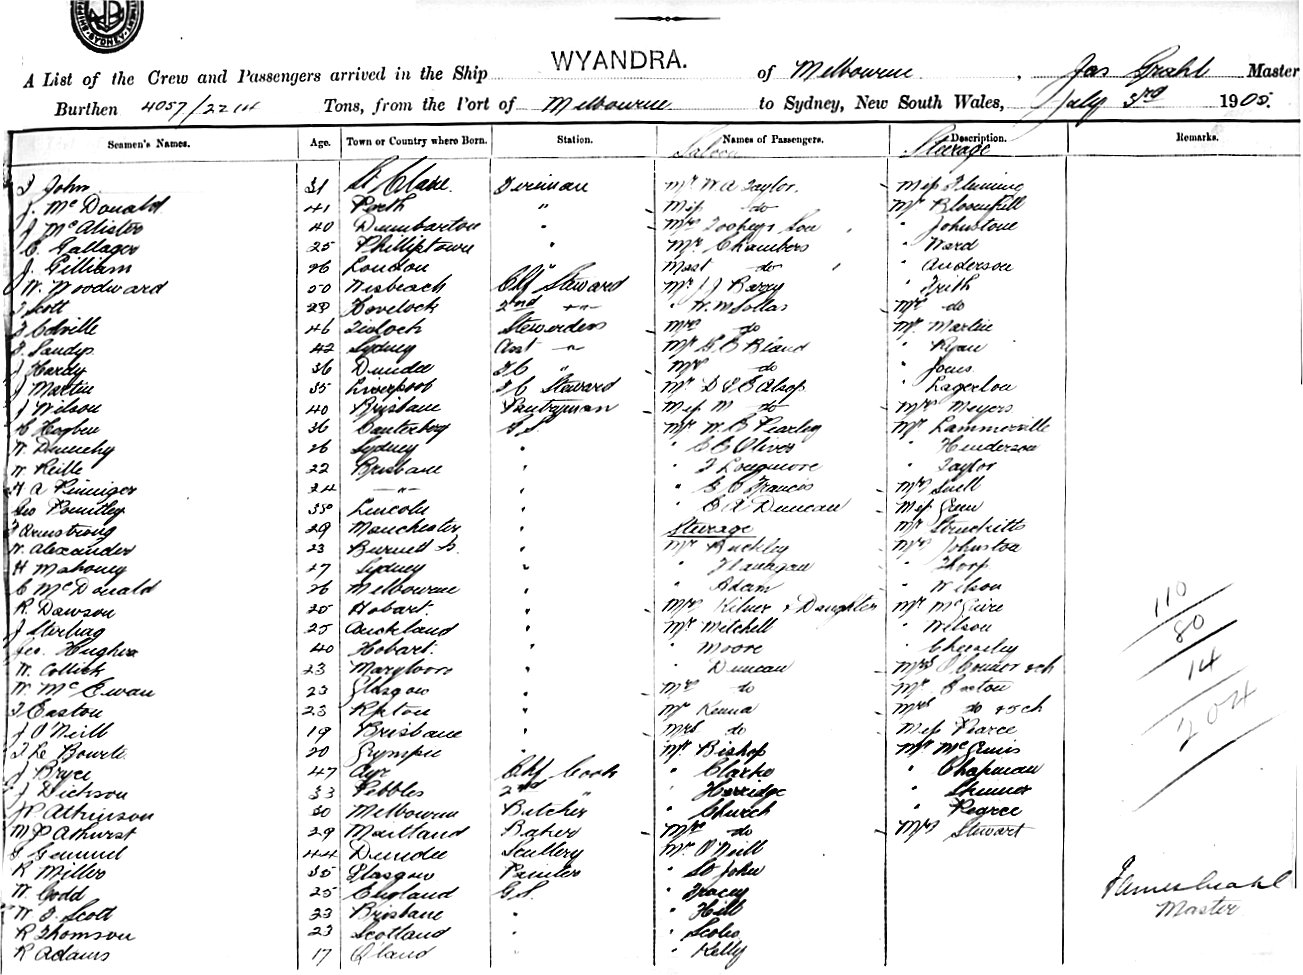 WYANDRA.
A List of the Crew and Passengers arrived in the Ship of Melbourne, Jas Grahl Master
Burthen 4057/2214 Tons, from the Port of Melbourne to Sydney, New South Wales, July 3rd 1905.
Seamen's Names. Age. Town or Country where Born. Station. Names of Passengers. Description. Remarks.
Saloon Steerage
J John 31 St Clare Fireman Mr W A Taylor Miss Fleming
J. McDonald 41 Perth " Miss do Mr Bloomfull
J McAlister 40 Dumbarton " Mrs Toohey & Son " Johnstone
C Gallager 25 Phillipstown " Mr Chambers " Ward
J. Gilliam 26 London " Mast do " Anderson
W. Woodward 50 Wisbeach Chf Steward Mr J J Barry " Frith
J Scott 28 Hovelock 2nd " " W. M Sollas Mrs do
46 Stewardess Mrs do Mr Martin
J. Sandys 42 Sydney Asst " Mr G E Bland " Ryan
J Hardy 36 Dundee FC " Mrs do " Jones
J Martin 35 Liverpool FC Steward Mr D J E Alsop
J Wilson 40 Brisbane Pantryman Miss M do Mrs Meyers
C Hogben 36 Canterbery Mr W. B Pearley Mr Lammerville
W. 26 Sydney " " G E Oliver " Henderson
W. Reille 22 Brisbane " " J Longmore " Taylor
H A Pinniger 24 " " " G C Francis Mrs Snell
Geo 35 Lincoln " " C A Duncan Miss
J Armstrong 29 Manchester " Steerage Mr
W. Alexander 23 Burnett S. " Mr Buckley Mrs Johnston
H Mahoney 27 Sydney " " Flanagan " Thorp
C McDonald 26 Melbourne " " Adam " Wilson
R. Dawson 25 Hobart " Mrs Kilner & Daughter Mr McGuire
J 25 Auckland " Mr Mitchell " Wilson
Geo. Hughes 40 Hobart. " " Moore
W. Collick 23 " " Duncan Mrs O'Connor & ch
W. McEwan 23 Glasgow " Mrs do Mr Easton
J Easton 23 " Mr Kenna Mrs do & ch
J O'Neill 19 Brisbane " Mrs do Miss Pearce
20 Gympie " Mr Bishop Mr McGinis
J Bryce 47 Ayr Chf Cook " Clarke " Chapman
J Dickson 33 Pebbles 2nd " " Herridge " Skinner
Atkinson 30 Melbourne Butcher " Church " Pearce
29 Maitland Baker Mrs do Mrs Stewart
J Gemmel 44 Dundee Scullery Mr O'Neill
R Miller 35 Glasgow Painter " St John
W. Codd 25 England G.S. " Tracey
W. J. Scott 23 Brisbane " " Hill
R Thomson 23 Scotland " " Scoles
R Adams 17 Q'land " " Kelly
110
80
14
204
James Grahl
Master